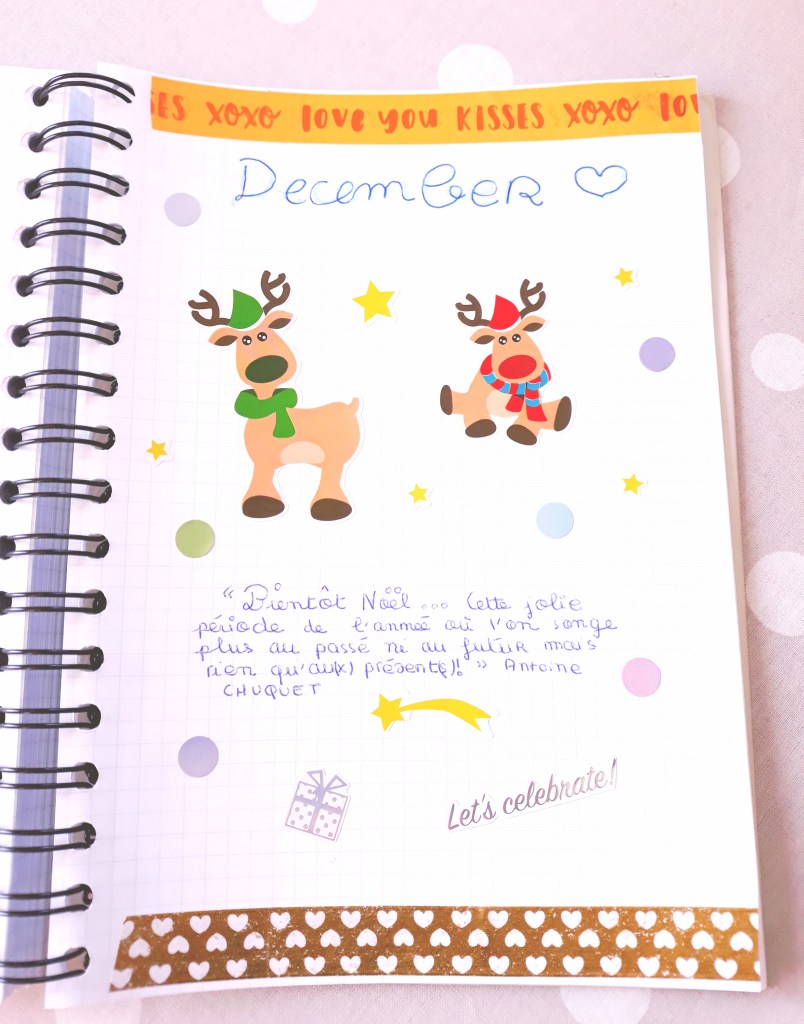 ES XOXO love you KISSES XOXO lov
December
" Bientôt Noël ... Cette jolie
période de l'année où l'on songe
plus au passé ni au futur mais
rien qu'au(x) présent(s)! " Antoine
CHUQUET
Let's celebrate!